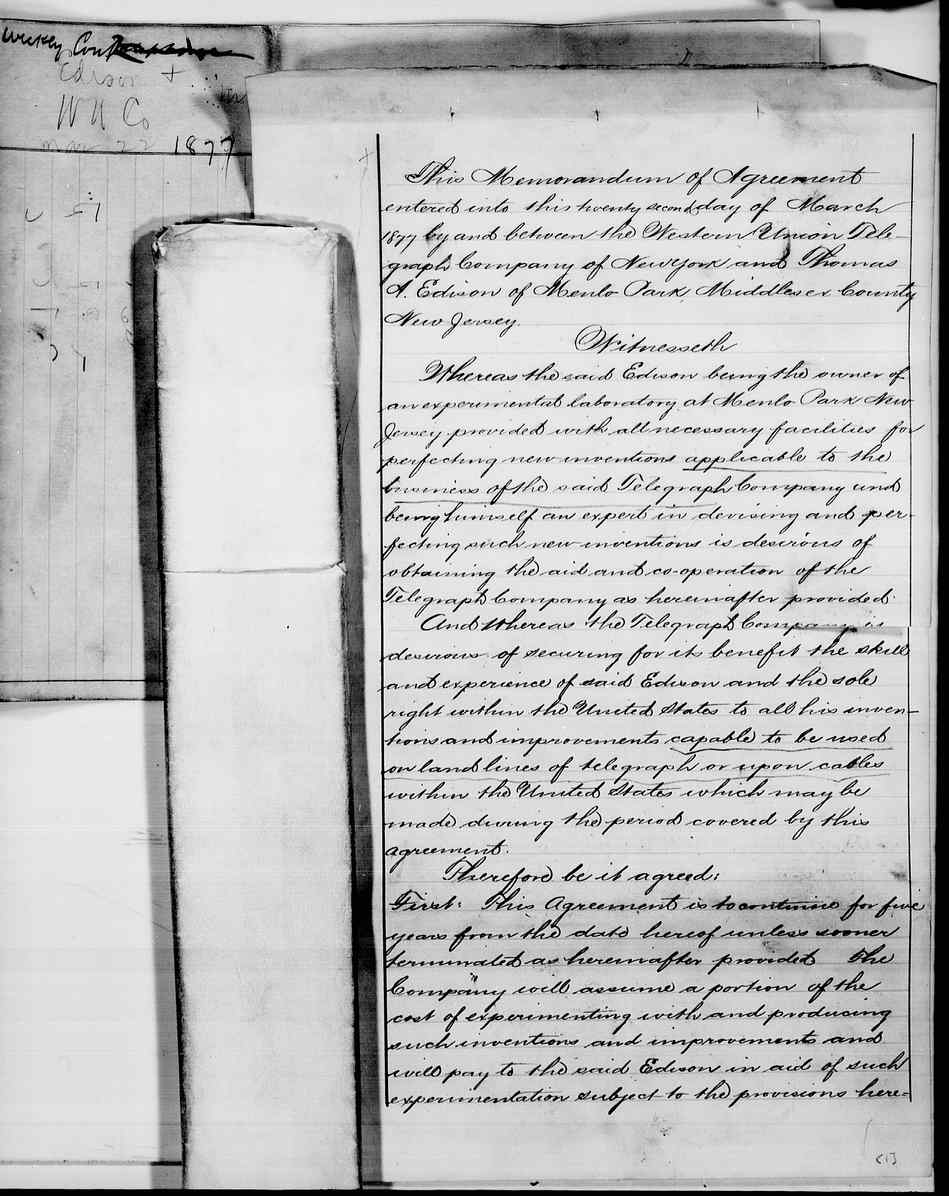 Edison +
W U Co
Mar 22 1877
This Memorandum of Agreement
entered into this twenty second day of March
1877 by and between the Western Union Tele-
graph Company of New York and Thomas
A. Edison of Menlo Park Middlesex County
New Jersey.
Witnesseth
Whereas the said Edison being the owner of
an experimental laboratory at Menlo Park New
Jersey provided with all necessary facilities for
perfecting new inventions applicable to the
business of the said Telegraph Company and
being himself an expert in devising and per-
fecting such new inventions is desirous of
obtaining the aid and co-operation of the
Telegraph Company as hereinafter provided.
And Whereas the Telegraph Company is
desirous of securing for its benefit the skill
and experience of said Edison and the sole
right within the United States to all his inven-
tions and improvements capable to be used
on land lines of telegraph or upon cables
within the United States which may be
made during the period covered by this
agreement.
Therefore be it agreed:
First: This Agreement is to continue for five
years from the date hereof unless sooner
terminated as hereinafter provided The
Company will assume a portion of the
cost of experimenting with and producing
such inventions and improvements and
will pay to the said Edison in aid of such
experimentation subject to the provisions here-